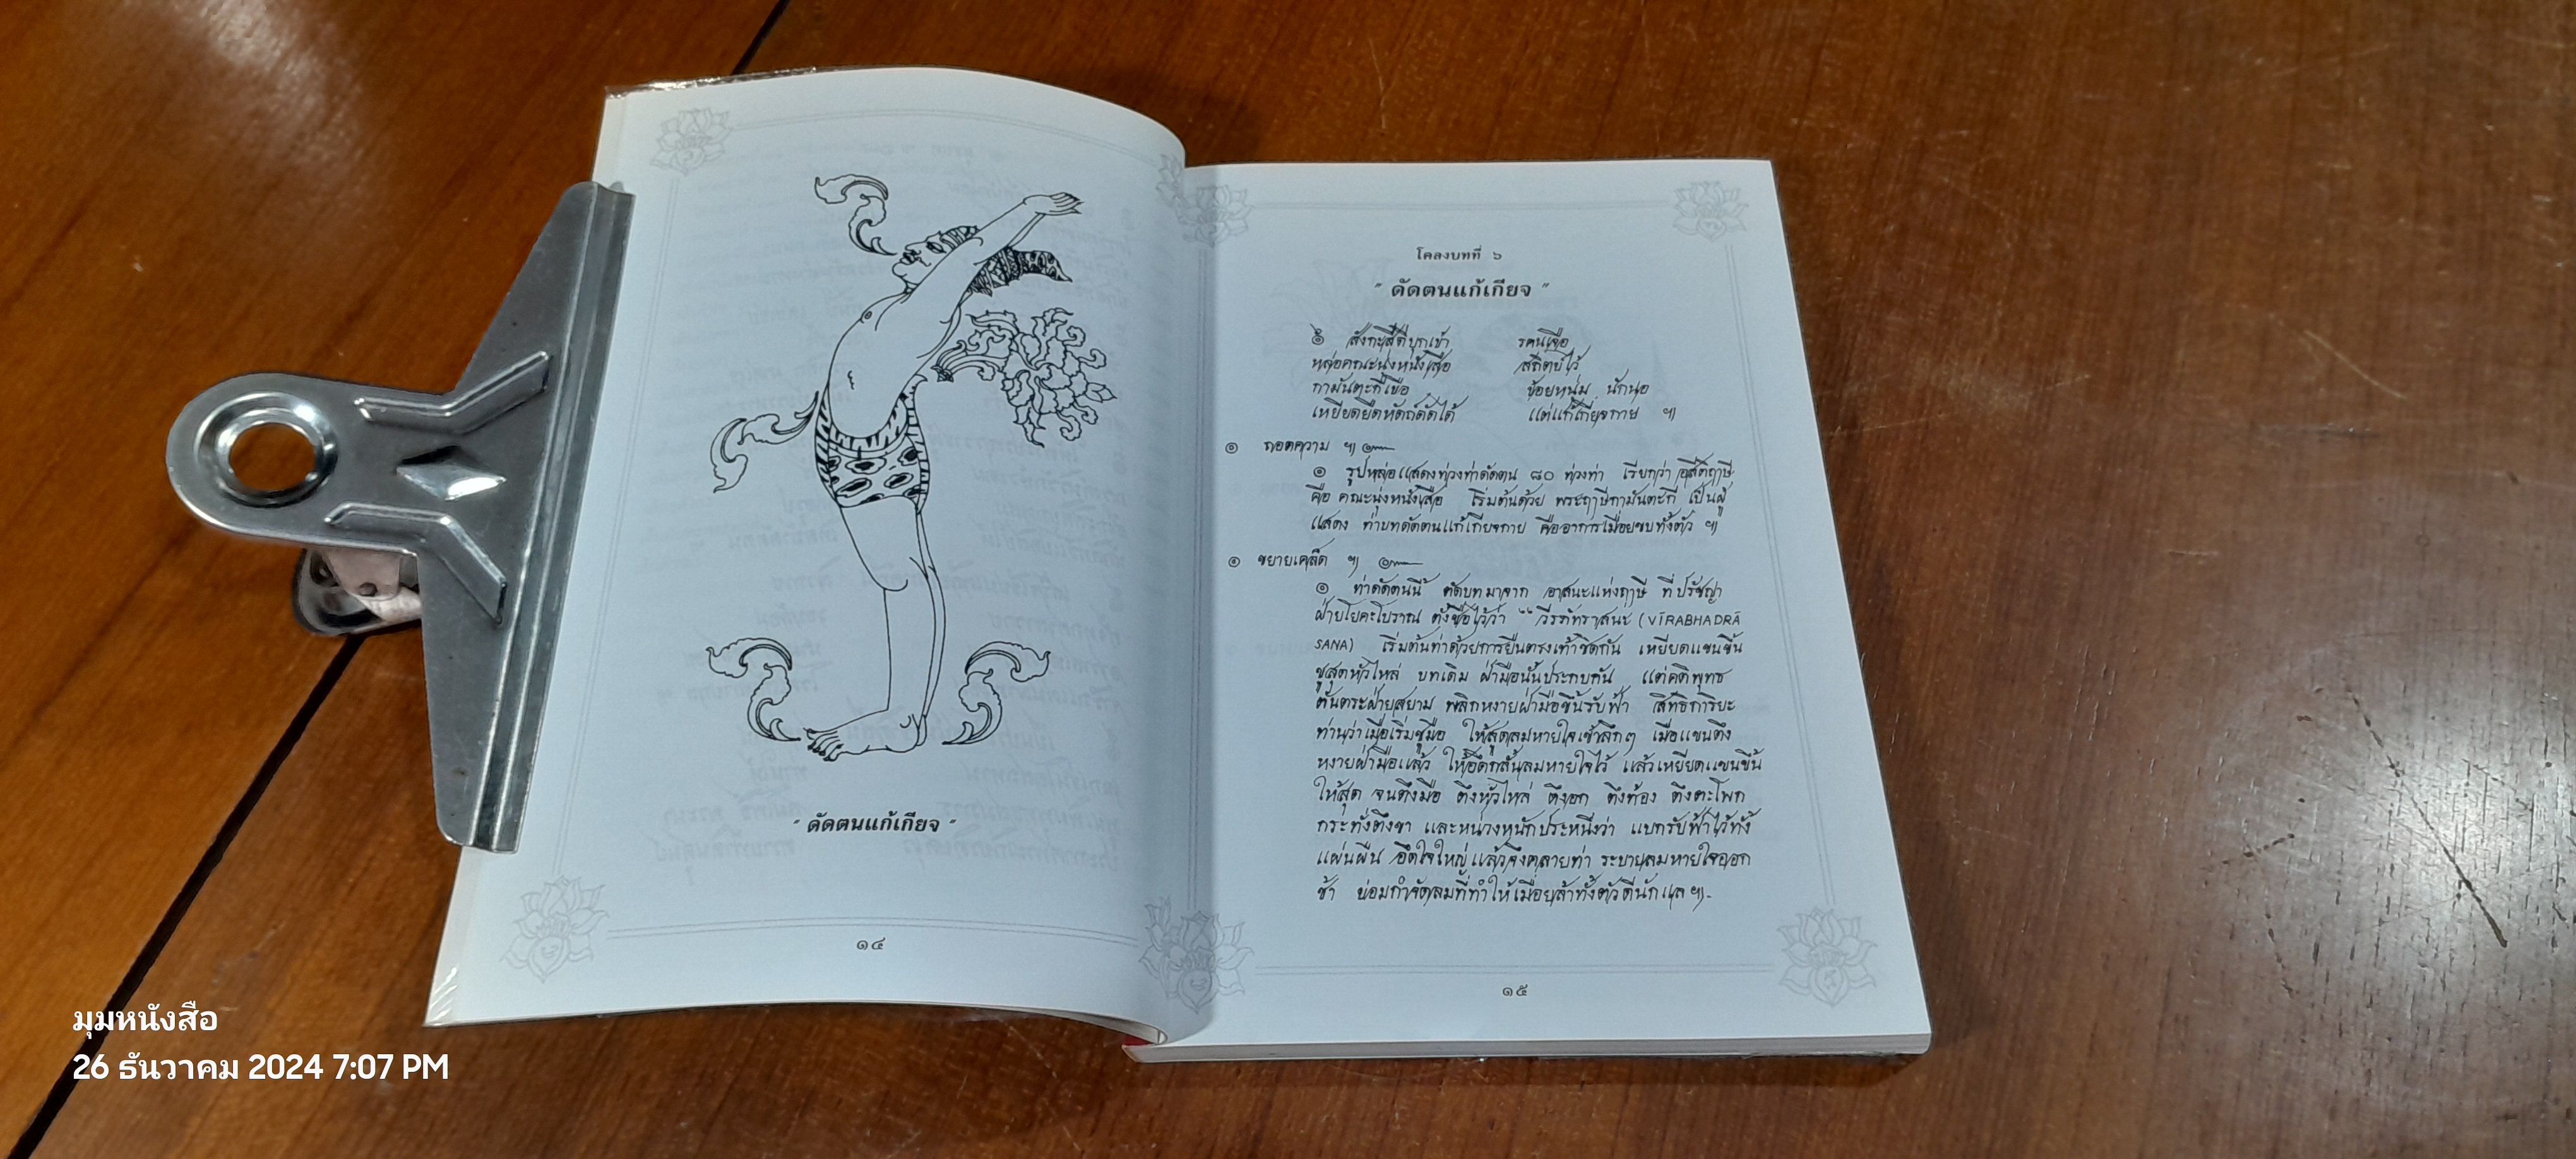 " ดัดตนแก้เกียจ "
๑๔
โคลงบทที่ ๖
" ดัดตนแก้เกียจ "
๏ สังกะสีดีบุกเข้า รคนเจือ
หล่อคณะนุ่งหนังเสือ สถิตย์ไว้
กามันตะกีเขือ ข้อยหนุ่ม นักนอ
เหยียดยึดหัดถ์ดัดได้ แต่แก้เกียจกาย ฯ
๏ ถอดความ ฯ
๏ รูปหล่อแสดงท่วงท่าดัดตน ๘๐ ท่วงท่า เรียกว่า อสีติฤาษี
คือ คณะนุ่งหนังเสือ เริ่มต้นด้วย พระฤาษีกามันตะกี เป็นผู้
แสดง ท่าบทดัดตนแก้เกียจกาย คืออาการเมื่อยขบทั้งตัว ฯ
๏ ขยายเคล็ด ฯ
๏ ท่าดัดตนนี้ ดัดบทมาจาก อาสนะแห่งฤาษี ที่ปรัชญา
ฝ่ายโยคะโบราณ ตั้งชื่อไว้ว่า "วีรภัทราสนะ (VĪRABHADRĀ
SANA) เริ่มต้นท่าด้วยการยืนตรงเท้าชิดกัน เหยียดแขนขึ้น
ชูสุดหัวไหล่ บทเดิม ฝ่ามือนั้นประกบกัน แต่คติพุทธ
ตันตระฝ่ายสยาม พลิกหงายฝ่ามือขึ้นรับฟ้า สิทธิการิยะ
ท่านว่าเมื่อเริ่มชูมือ ให้สูดลมหายใจเข้าลึกๆ เมื่อแขนตึง
หงายฝ่ามือแล้ว ให้อึดกลั้นลมหายใจไว้ แล้วเหยียดแขนขึ้น
ให้สุด จนตึงมือ ตึงหัวไหล่ ตึงอก ตึงท้อง ตึงตะโพก
กระทั่งตึงขา และหน่วงหนักประหนึ่งว่า แบกรับฟ้าไว้ทั้ง
แผ่นผืน อึดใจใหญ่แล้วจึงคลายท่า ระบายลมหายใจออก
ช้า ย่อมกำจัดลมที่ทำให้เมื่อยล้าทั้งตัวดีนักแล ฯ
๑๕
มุมหนังสือ
26 ธันวาคม 2024 7:07 PM